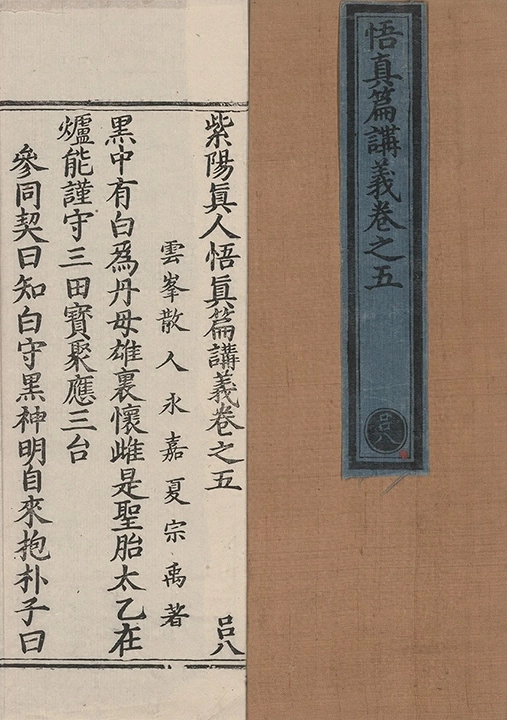 悟真篇講義卷之五
吕八
紫陽真人悟真篇講義卷之五 吕八
雲峯散人永嘉夏宗禹著
黑中有白爲丹母雄裏懷雌是聖胎太乙在
爐能謹守三田寶聚應三台
參同契曰知白守黑神明自來抱朴子曰